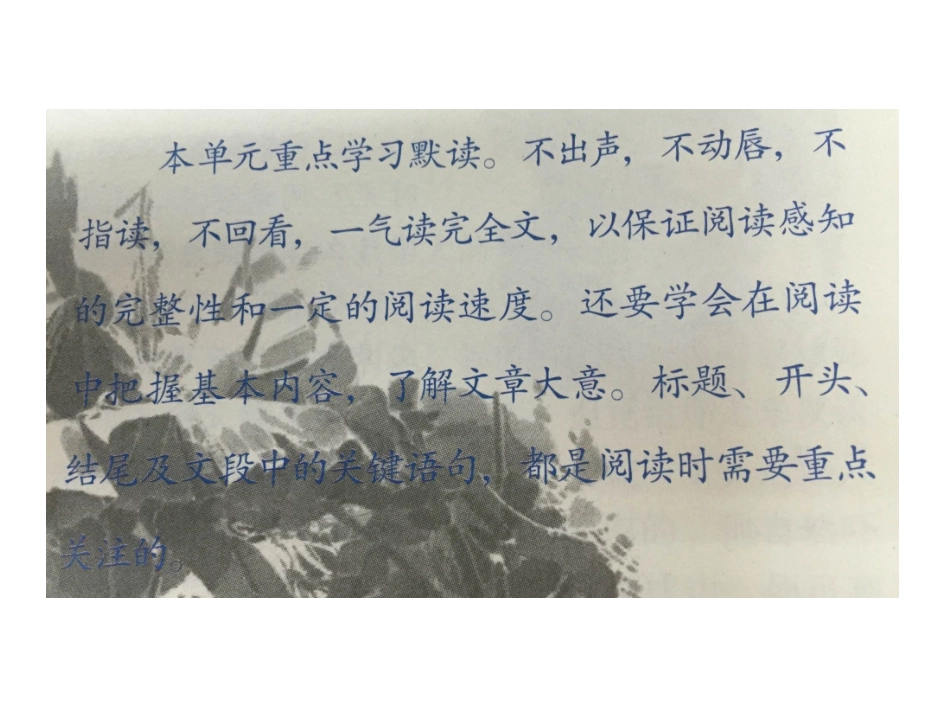 本单元重点学习默读。不出声，不动唇，不
指读，不回看，一气读完全文，以保证阅读感知
的完整性和一定的阅读速度。还要学会在阅读
中把握基本内容，了解文章大意。标题、开头、
结尾及文段中的关键语句，都是阅读时需要重点
关注的。